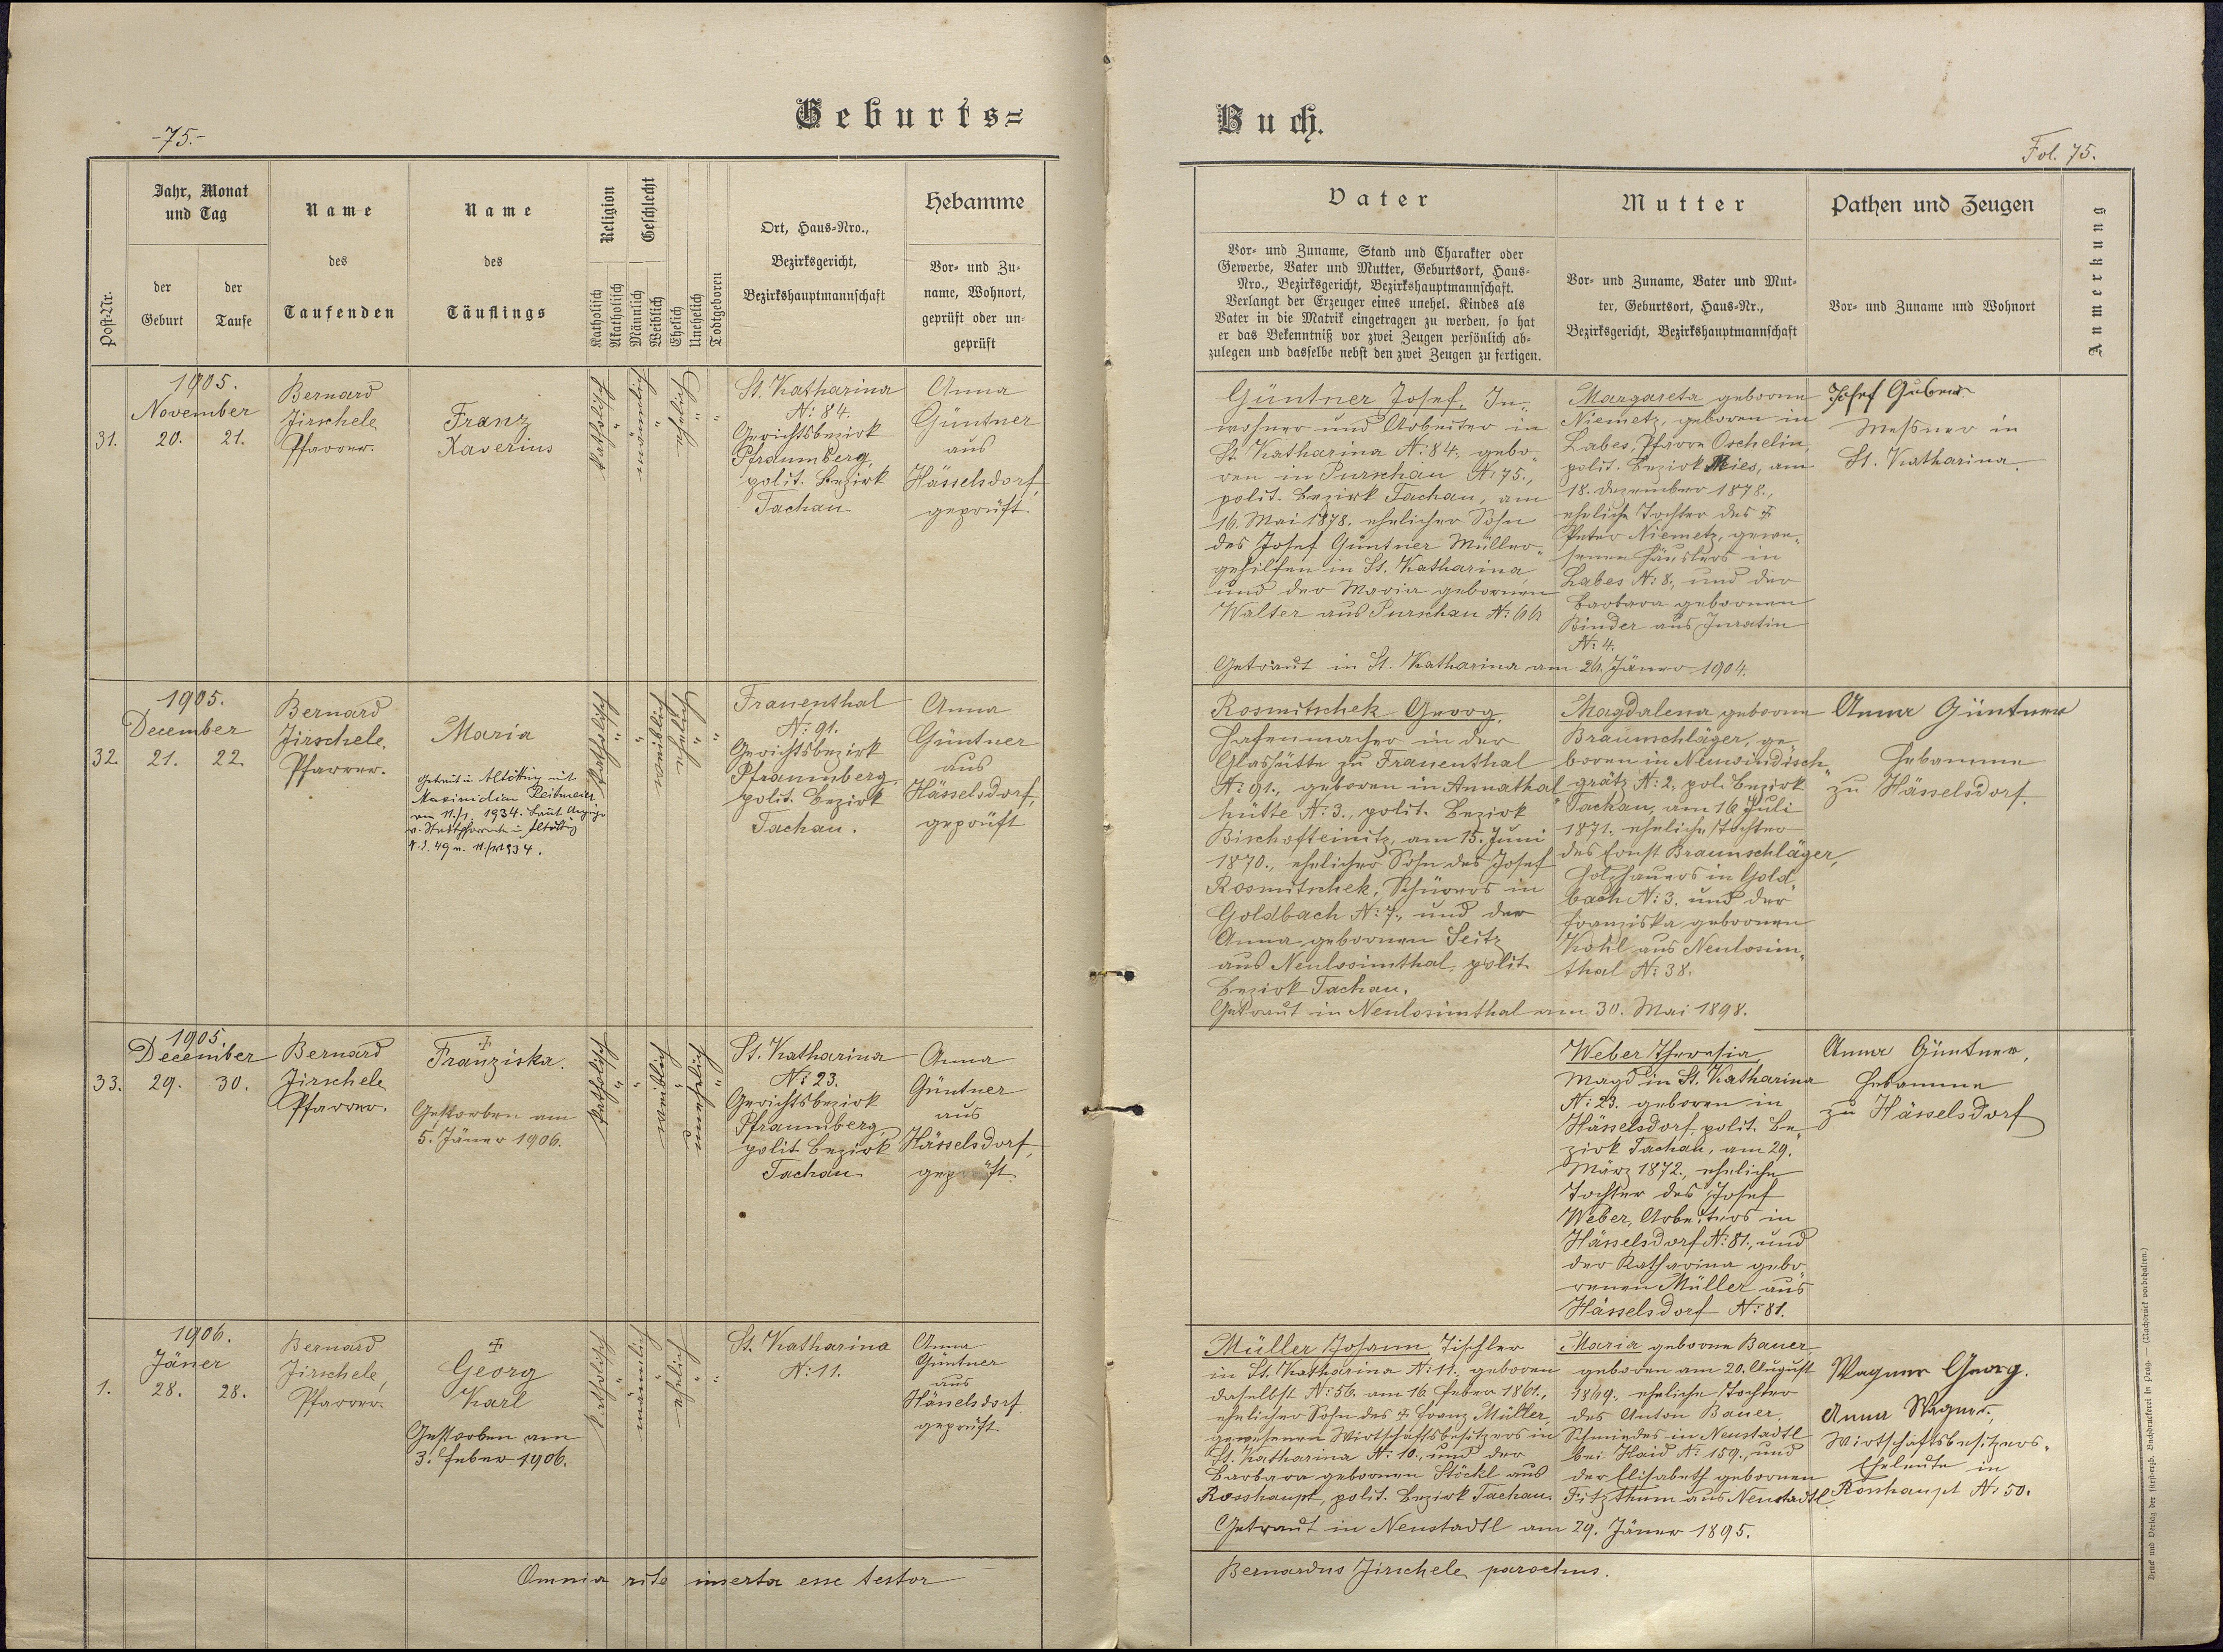 Geburts=
Buch.
-75.-
Fol. 75.
Post-Nr.
Jahr, Monat
und Tag
der
Geburt
der
Taufe
Name
des
Taufenden
Name
des
Täuflings
Religion
Katholisch
Akatholisch
Geschlecht
Männlich
Weiblich
Ehelich
Unehelich
Todtgeboren
Ort, Haus-Nro.,
Bezirksgericht,
Bezirkshauptmannschaft
Hebamme
Vor- und Zu-
name, Wohnort,
geprüft oder un-
geprüft
Vater
Vor- und Zuname, Stand und Charakter oder
Gewerbe, Vater und Mutter, Geburtsort, Haus-
Nro., Bezirksgericht, Bezirkshauptmannschaft.
Verlangt der Erzeuger eines unehel. Kindes als
Vater in die Matrik eingetragen zu werden, so hat
er das Bekenntniß vor zwei Zeugen persönlich ab-
zulegen und dasselbe nebst den zwei Zeugen zu fertigen.
Mutter
Vor- und Zuname, Vater und Mut-
ter, Geburtsort, Haus-Nr.,
Bezirksgericht, Bezirkshauptmannschaft
Pathen und Zeugen
Vor- und Zuname und Wohnort
Anmerkung
31.
1905.
November
20. 21.
Bernard
Jirschele
Pfarrer.
Franz
Xaverius
katholisch
"
männlich
"
ehelich
"
"
St. Katharina
N: 84.
Gerichtsbezirk
Pfraumberg,
polit. Bezirk
Tachau
Anna
Güntner
aus
Hässelsdorf,
geprüft
Güntner Josef, In„
wohner und Arbeiter in
St. Katharina N: 84., gebo„
ren in Purschau N: 75.,
polit. Bezirk Tachau, am
16. Mai 1878. ehelicher Sohn
des Josef Güntner Müller„
gehilfen in St. Katharina
und der Maria gebornen
Walter aus Purschau N: 66
Margareta geborne
Niemetz, geboren in
Labes, Pfarre Oschelin,
polit. Bezirk Mies, am
18. Dezember 1878.,
eheliche Tochter des ‡
Peter Niemetz, gewe„
senen Häuslers in
Labes N: 8., und der
Barbara gebornen
Binder aus Juratin
N: 4.
Getraut in St. Katharina am 26. Jäner 1904.
Josef
Messner in
St. Katharina.
32.
1905.
December
21. 22.
Bernard
Jirschele,
Pfarrer.
Maria
Getraut in Altötting mit
Maximilian
am 11./1. 1934. Laut Anzeige
v. Stadtpfarramte in Altötting
N.E. 49 v. 1934.
katholisch
"
"
weiblich
ehelich
"
"
Frauenthal
N: 91.
Gerichtsbezirk
Pfraumberg,
polit. Bezirk
Tachau.
Anna
Güntner
aus
Hässelsdorf,
geprüft
Rosmitschek Georg,
Hafenmacher in der
Glashütte zu Frauenthal
N: 91., geboren in Annathal
hütte N: 3., polit. Bezirk
Bischofteinitz, am 15. Juni
1870., ehelicher Sohn des Josef
Rosmitschek, Schürers in
Goldbach N: 7., und der
Anna gebornen Seitz
aus Neulosimthal, polit.
Bezirk Tachau.
Magdalena geborne
Braunschläger, ge„
boren in Neuwindisch„
grätz N: 2, pol. Bezirk
Tachau, am 16 Juli
1871., eheliche Tochter
des Ernst Braunschläger,
Holzhauers in Gold„
bach N: 3. und der
Franziska gebornen
Kohl aus Neulosim„
thal N: 38.
Getraut in Neulosimthal am 30. Mai 1898.
Anna Güntner
Hebamme
zu Hässelsdorf.
33.
1905.
December
29. 30.
Bernard
Jirschele
Pfarrer.
‡
Franziska.
Gestorben am
5. Jäner 1906.
katholisch
"
"
weiblich
"
unehelich
"
St. Katharina
N: 23.
Gerichtsbezirk
Pfraumberg,
polit. Bezirk
Tachau
Anna
Güntner
aus
Hässelsdorf,
geprüft
Weber Theresia,
Magd in St. Katharina
N: 23. geboren in
Hässelsdorf, polit. Be„
zirk Tachau, am 29.
März 1872., eheliche
Tochter des Josef
Weber, Arbeiters in
Hässelsdorf N: 81., und
der Katharina gebo„
renen Müller aus
Hässelsdorf N: 81.
Anna Güntner,
Hebamme
zu Hässelsdorf
1.
1906.
Jäner
28. 28.
Bernard
Jirschele,
Pfarrer.
‡
Georg
Karl
Gestorben am
3. Feber 1906.
katholisch
"
männlich
"
ehelich
"
"
St. Katharina
N: 11.
Anna
Güntner
aus
Hässelsdorf
geprüft
Müller Johann Tischler
in St. Katharina N: 11., geboren
daselbst N: 56. am 16. Feber 1861.,
ehelicher Sohn des ‡ Franz Müller,
gewesenen Wirtschaftsbesitzers in
St. Katharina N: 10., und der
Barbara gebornen Stöckl aus
Rosshaupt, polit. Bezirk Tachau.
Maria geborne Bauer,
geboren am 20. August
1869., eheliche Tochter
des Anton Bauer,
Schmiedes in Neustadtl
bei Haid N: 159., und
der Elisabeth gebornen
Fitzthum aus Neustadtl.
Getraut in Neustadtl am 29. Jäner 1895.
Wagner Georg.
Anna Wagner,
Wirtschaftsbesitzers„
Eheleute in
Rosshaupt N: 50.
Omnia rite inserta esse testor
Bernardus Jirschele, parochus.
Druck und Verlag der fürst-erzb. Buchdruckerei in Prag. — (Nachdruck vorbehalten.)